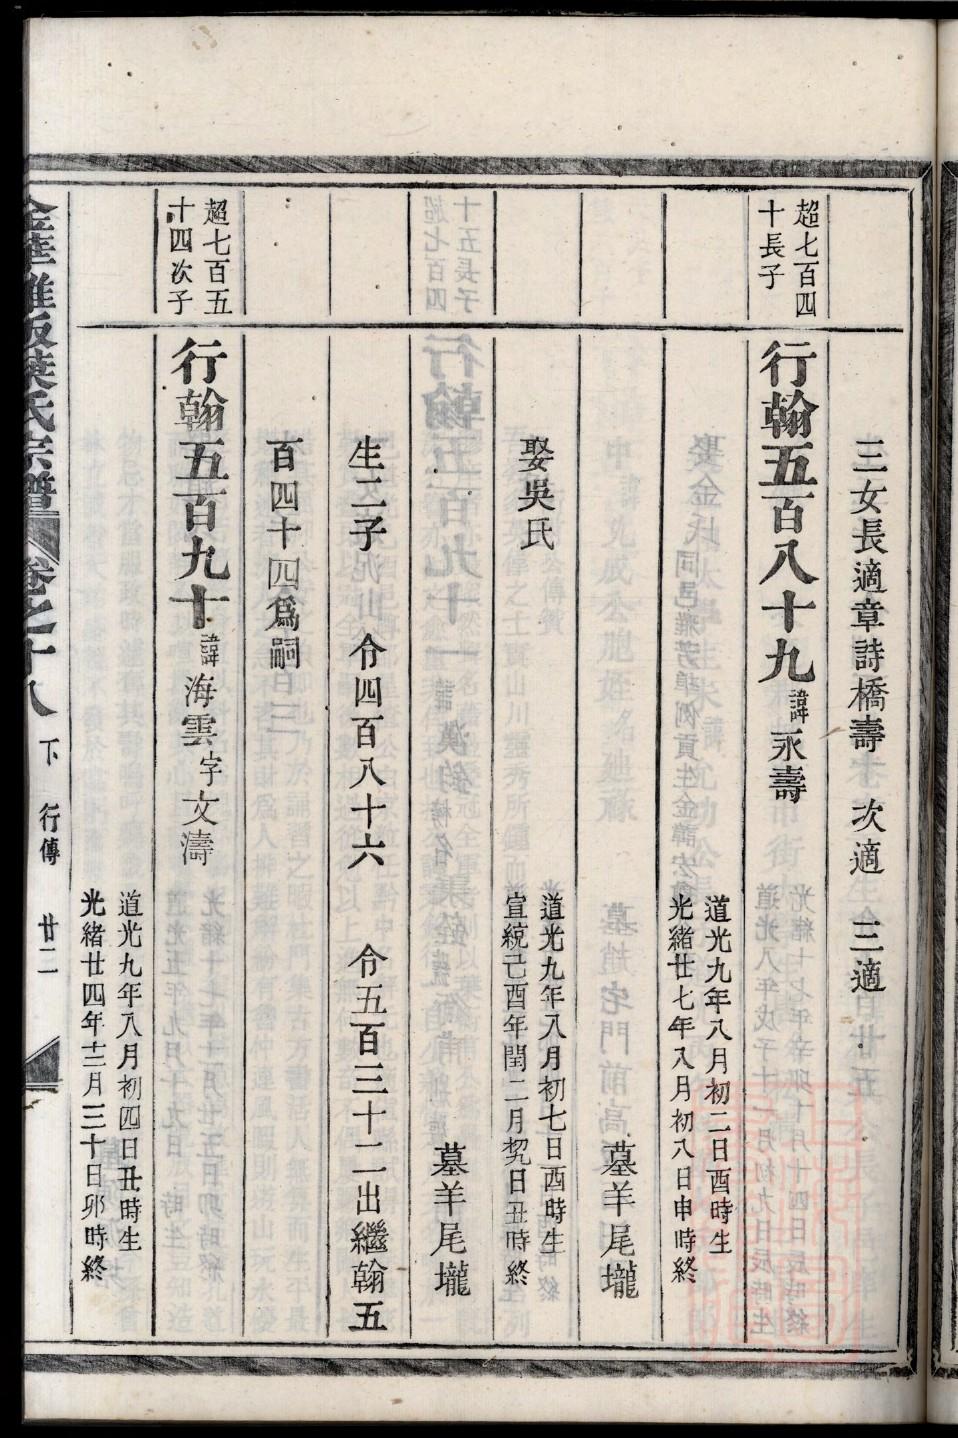 三女長適章詩橋壽　次適　三適
超七百四
十長子
行翰五百八十九　諱永壽
道光九年八月初二日酉時生
光緒廿七年八月初八日申時終
墓羊尾壠
娶吳氏
道光九年八月初七日酉時生
宣統己酉年閏二月初九日丑時終
墓羊尾壠
生二子　令四百八十六　令五百三十二出繼翰五
百四十四爲嗣
超七百五
十四次子
行翰五百九十　諱海雲字文濤
道光九年八月初四日丑時生
光緒廿四年十二月三十日卯時終
金華雅畈葉氏宗譜　卷之十八　下　行傳　廿二